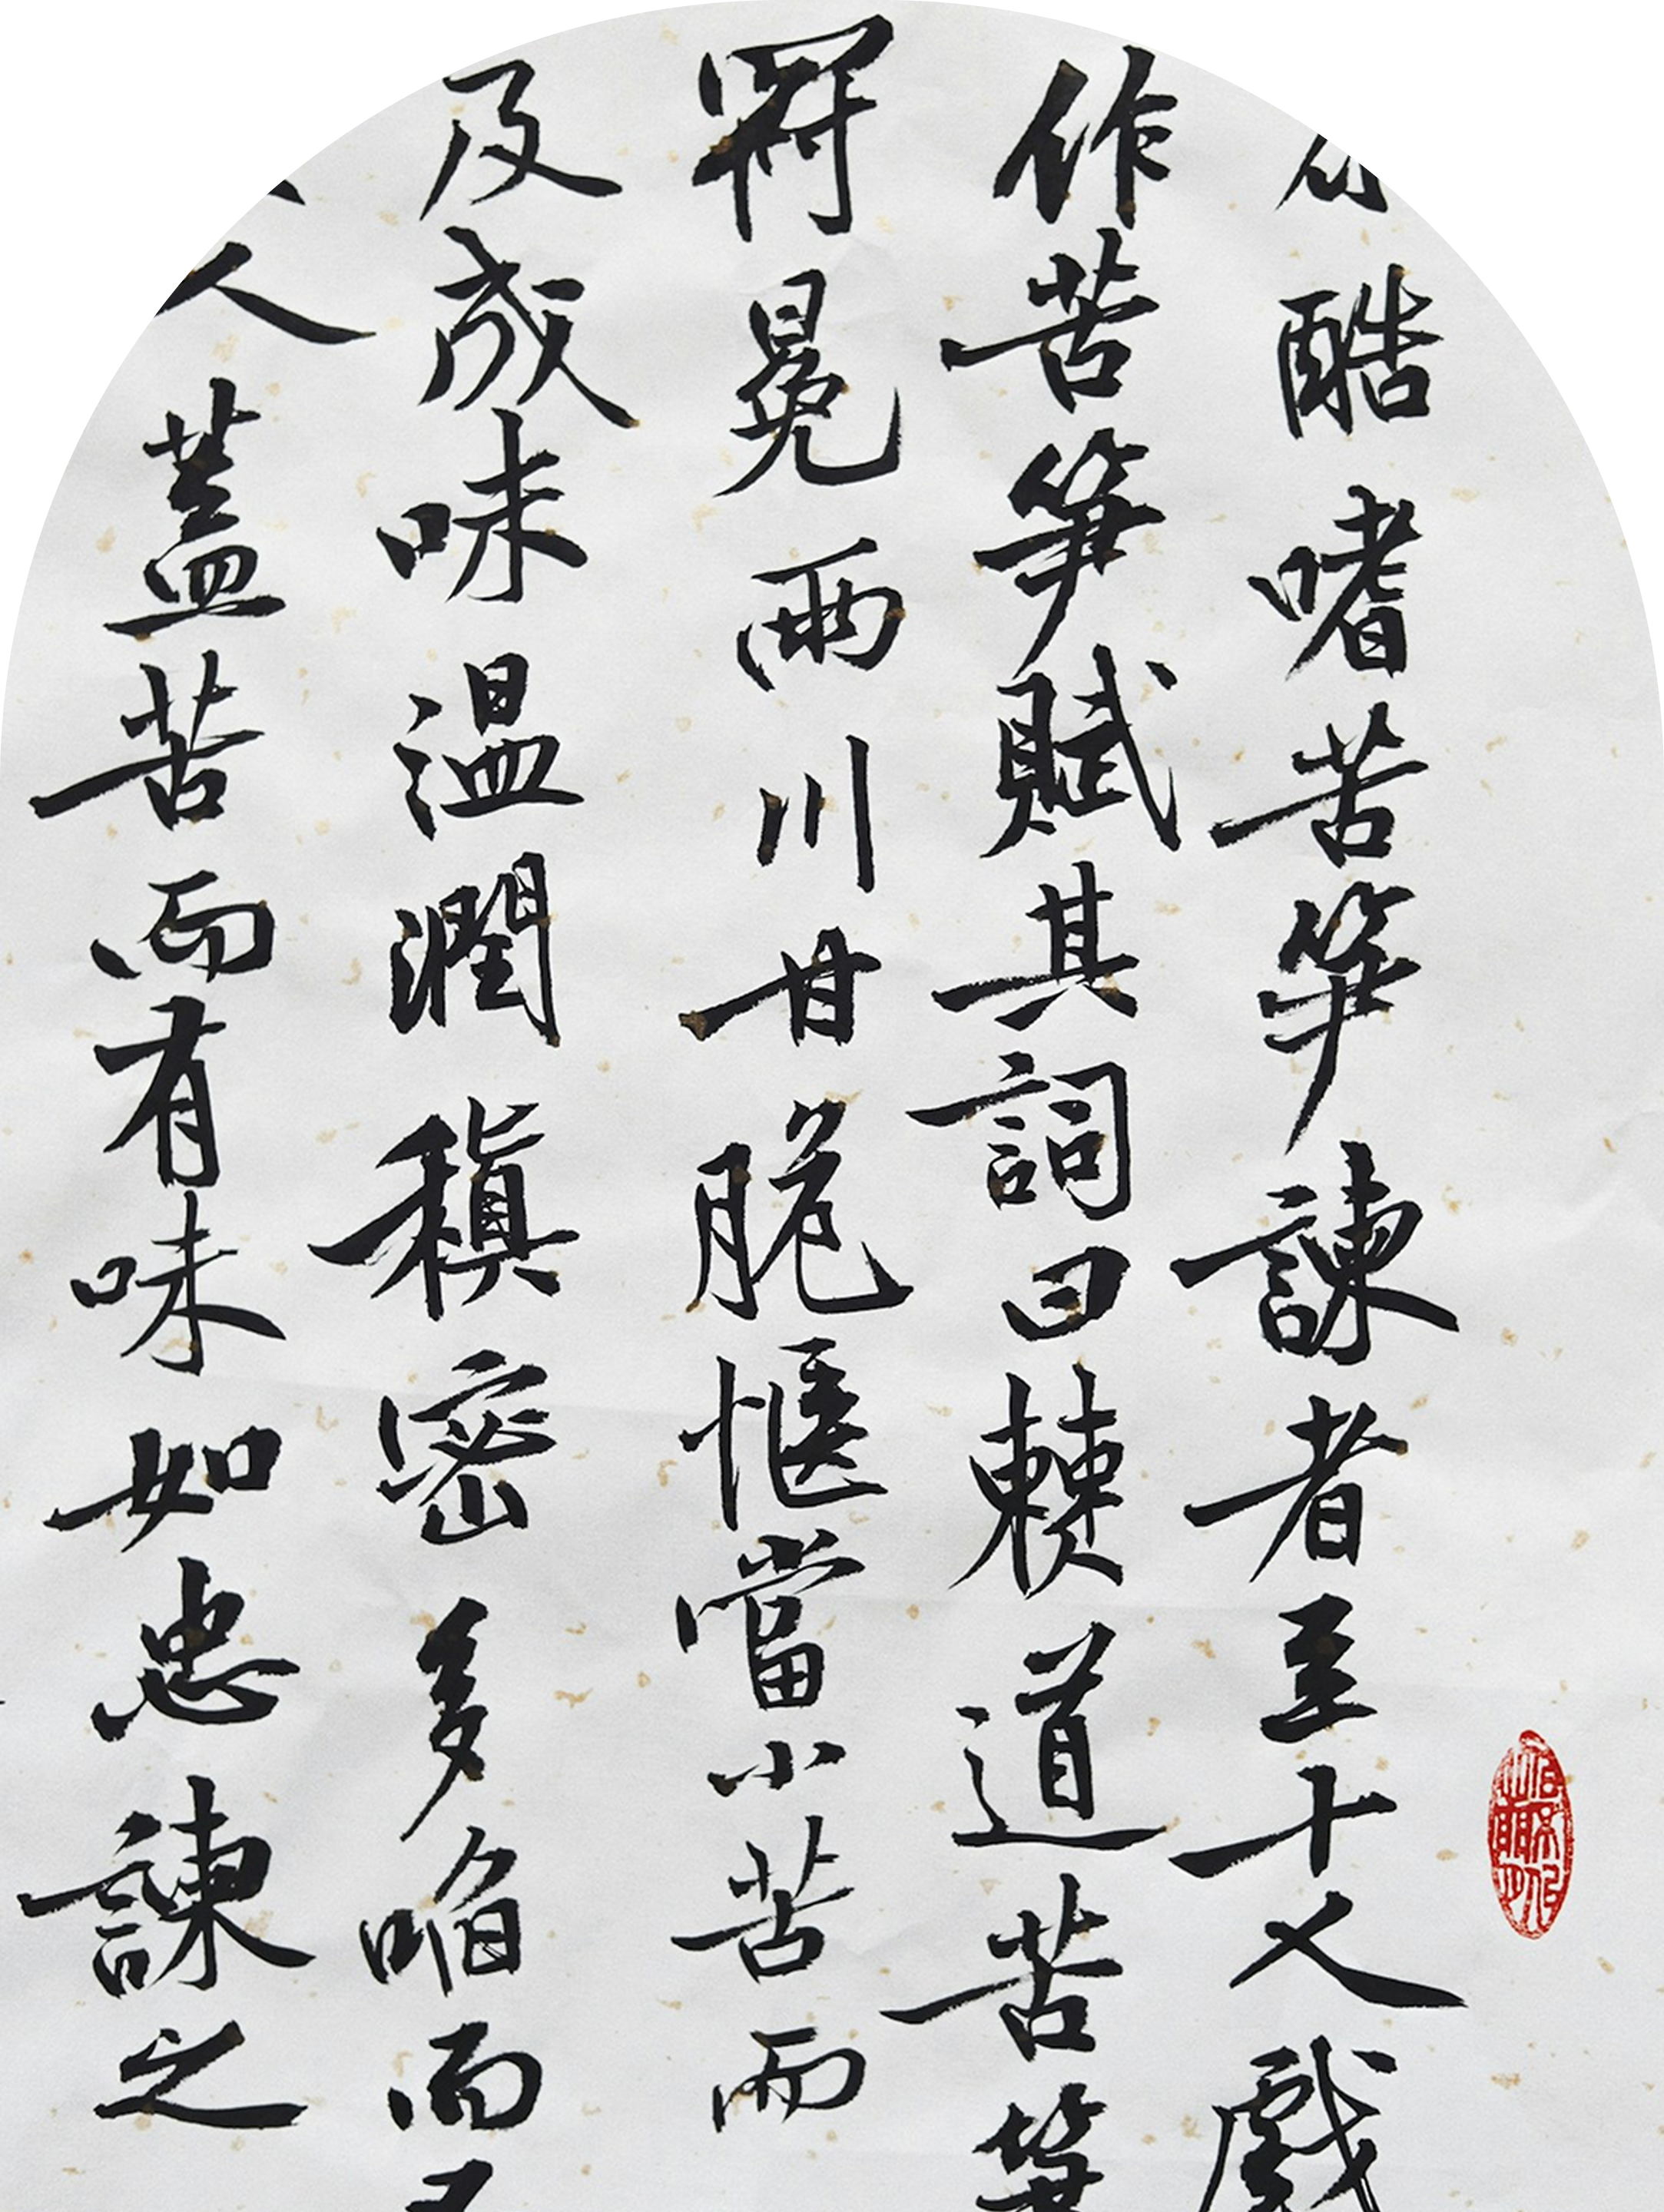 酷嗜苦笋諫者至十人戲
作苦笋賦其詞曰僰道苦笋
冠冕兩川甘脆愜當小苦而
反成味溫潤稹密多啗而不
人蓋苦而有味如忠諫之